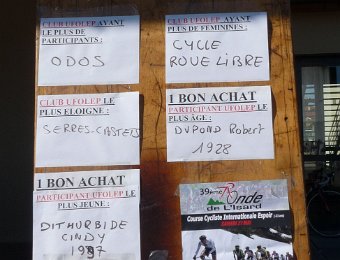 CLUB UFOLEP AYANT
LE PLUS DE
PARTICIPANTS :
ODOS
CLUB UFOLEP AYANT
PLUS DE FEMININES :
CYCLE
ROUE LIBRE
CLUB UFOLEP LE
PLUS ELOIGNE :
SERRES-CASTETS
1 BON ACHAT
PARTICIPANT UFOLEP LE
PLUS ÂGE :
DUPOND Robert
1928
1 BON ACHAT
PARTICIPANT UFOLEP LE
PLUS JEUNE :
DITHURBIDE
CINDY
1997
39ème Ronde
de l'Isard
Course Cycliste Internationale Espoir